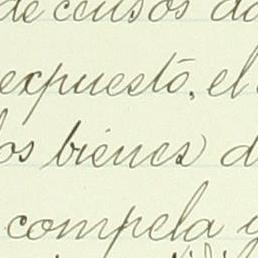 de censos da
expuesto, el
los bienes d
compela y